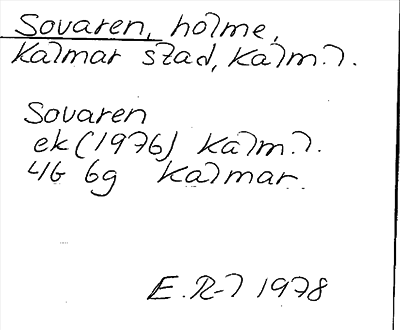 Sovaren, holme,
Kalmar stad, Kalm.l.
Sovaren
ek (1976) Kalm.l.
4G 6g Kalmar.
E.R-l 1978